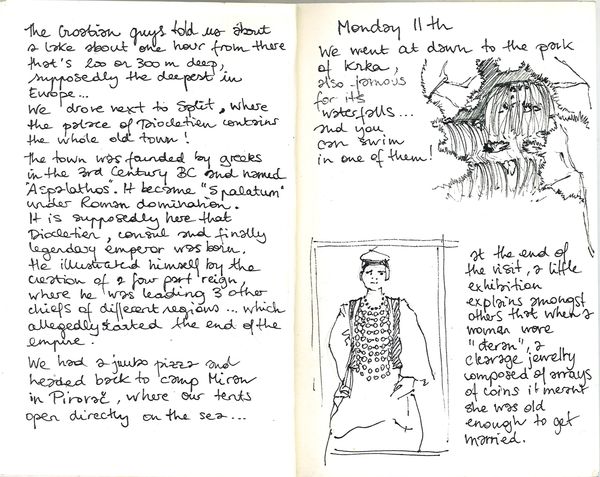 The Croatian guys told us about
a lake about one hour from there
that's 200 or 300 m deep,
supposedly the deepest in
Europe...
We drove next to Split, where
the palace of Diocletien contains
the whole old town!
The town was founded by greeks
in the 3rd Century BC and named
"Aspalathos". It became "Spalatum"
under Roman domination.
It is supposedly here that
Diocletien, consul and finally
legendary emperor was born.
He illustrated himself by the
creation of a four part reign
where he was leading 3 other
chiefs of different regions... which
allegedly started the end of the
empire.
We had a jumbo pizza and
headed back to camp Miran
in Pirovač, where our tents
open directly on the sea...
Monday 11th
We went at dawn to the park
of Krka,
also famous
for its
waterfalls...
and you
can swim
in one of them!
at the end of
the visit, a little
exhibition
explains amongst
others that when a
woman wore
"đeran", a
cleavage jewelry
composed of arrays
of coins it meant
she was old
enough to get
married.